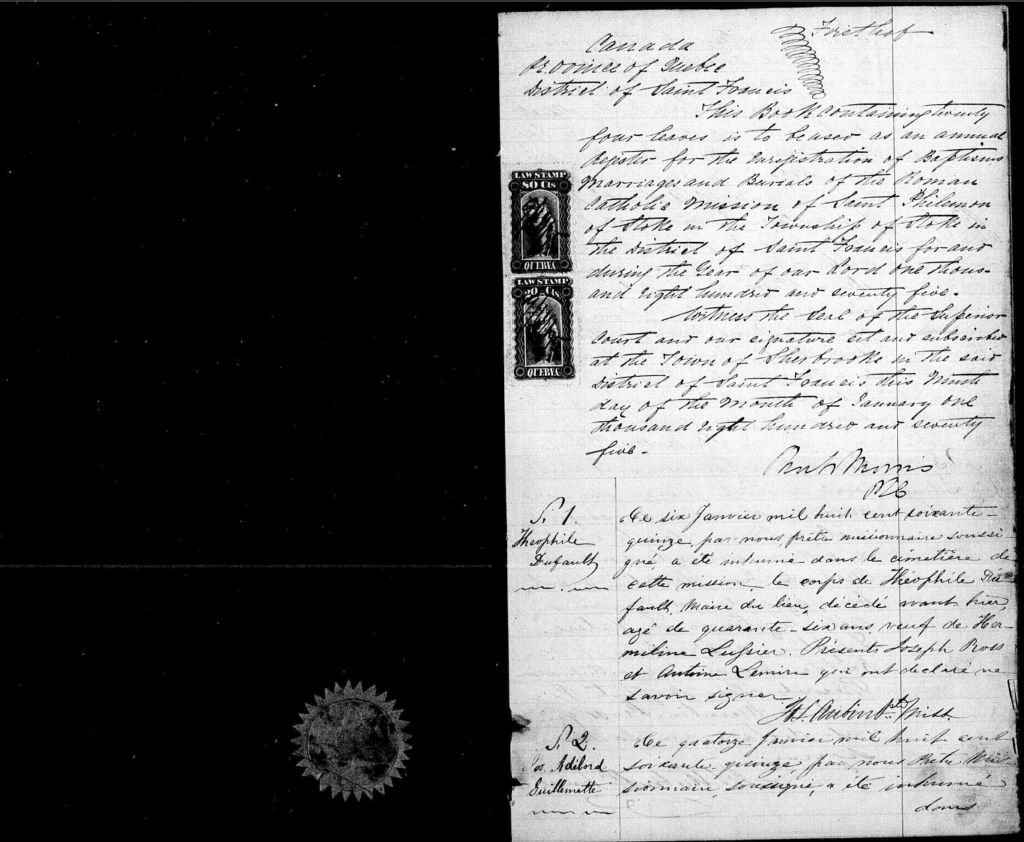 Canada
Province of Quebec
District of Saint Francis
This Book containing twenty
four leaves is to be used as an annual
Register for the Enregistration of Baptisms
Marriages and Burials of the Roman
Catholic Mission of Saint Philemon
of Stoke in the Township of Stoke in
the District of Saint Francis for and
during the Year of our Lord one thous-
and eight hundred and seventy five.
Witness the Seal of the Superior
Court and our signature set and subscribed
at the Town of Sherbrooke in the said
District of Saint Francis this Ninth
day of the Month of January one
thousand eight hundred and seventy
five.
LAW STAMP
80 Cts
QUEBEC
LAW STAMP
20 Cts
QUEBEC
Morris
S. 1.
Théophile
Dufault
Ce six Janvier mil huit cent soixante-
quinze, par nous, prêtre missionnaire soussi-
gné, a été inhumé dans le cimetière de
cette mission, le corps de Théophile Du-
fault, Maire du lieu, décédé avant hier,
agé de quarante-six ans, veuf de Her-
miline Lussier. Présents Joseph Ross
et Antoine Lemire qui ont déclaré ne
savoir signer
Aubin Ptre Miss.
S. 2.
Jos. Adélord
Guillemette
Ce quatorze Janvier mil huit cent
soixante quinze par nous Prêtre Mis-
sionnaire, soussigné, a été inhumé
dans